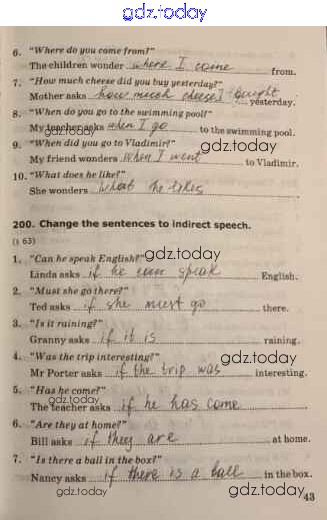 gdz.today
6. "Where do you come from?"
The children wonder where I come from.
7. "How much cheese did you buy yesterday?"
Mother asks how much cheese I bought yesterday.
8. "When do you go to the swimming pool?"
My teacher asks when I go to the swimming pool.
9. "When did you go to Vladimir?" gdz.today
My friend wonders when I went to Vladimir.
10. "What does he like?"
She wonders what he likes
gdz.today
200. Change the sentences to indirect speech.
(§ 63)
gdz.today
1. "Can he speak English?"
Linda asks if he can speak English.
2. "Must she go there?" gdz.today
Ted asks if she must go there.
3. "Is it raining?"
Granny asks if it is raining.
4. "Was the trip interesting?" gdz.today
Mr Porter asks if the trip was interesting.
5. "Has he come?"
The teacher asks if he has come
gdz.today
6. "Are they at home?"
Bill asks if they are at home.
7. "Is there a ball in the box?"
Nancy asks if there is a ball in the box.
gdz.today gdz.today
43